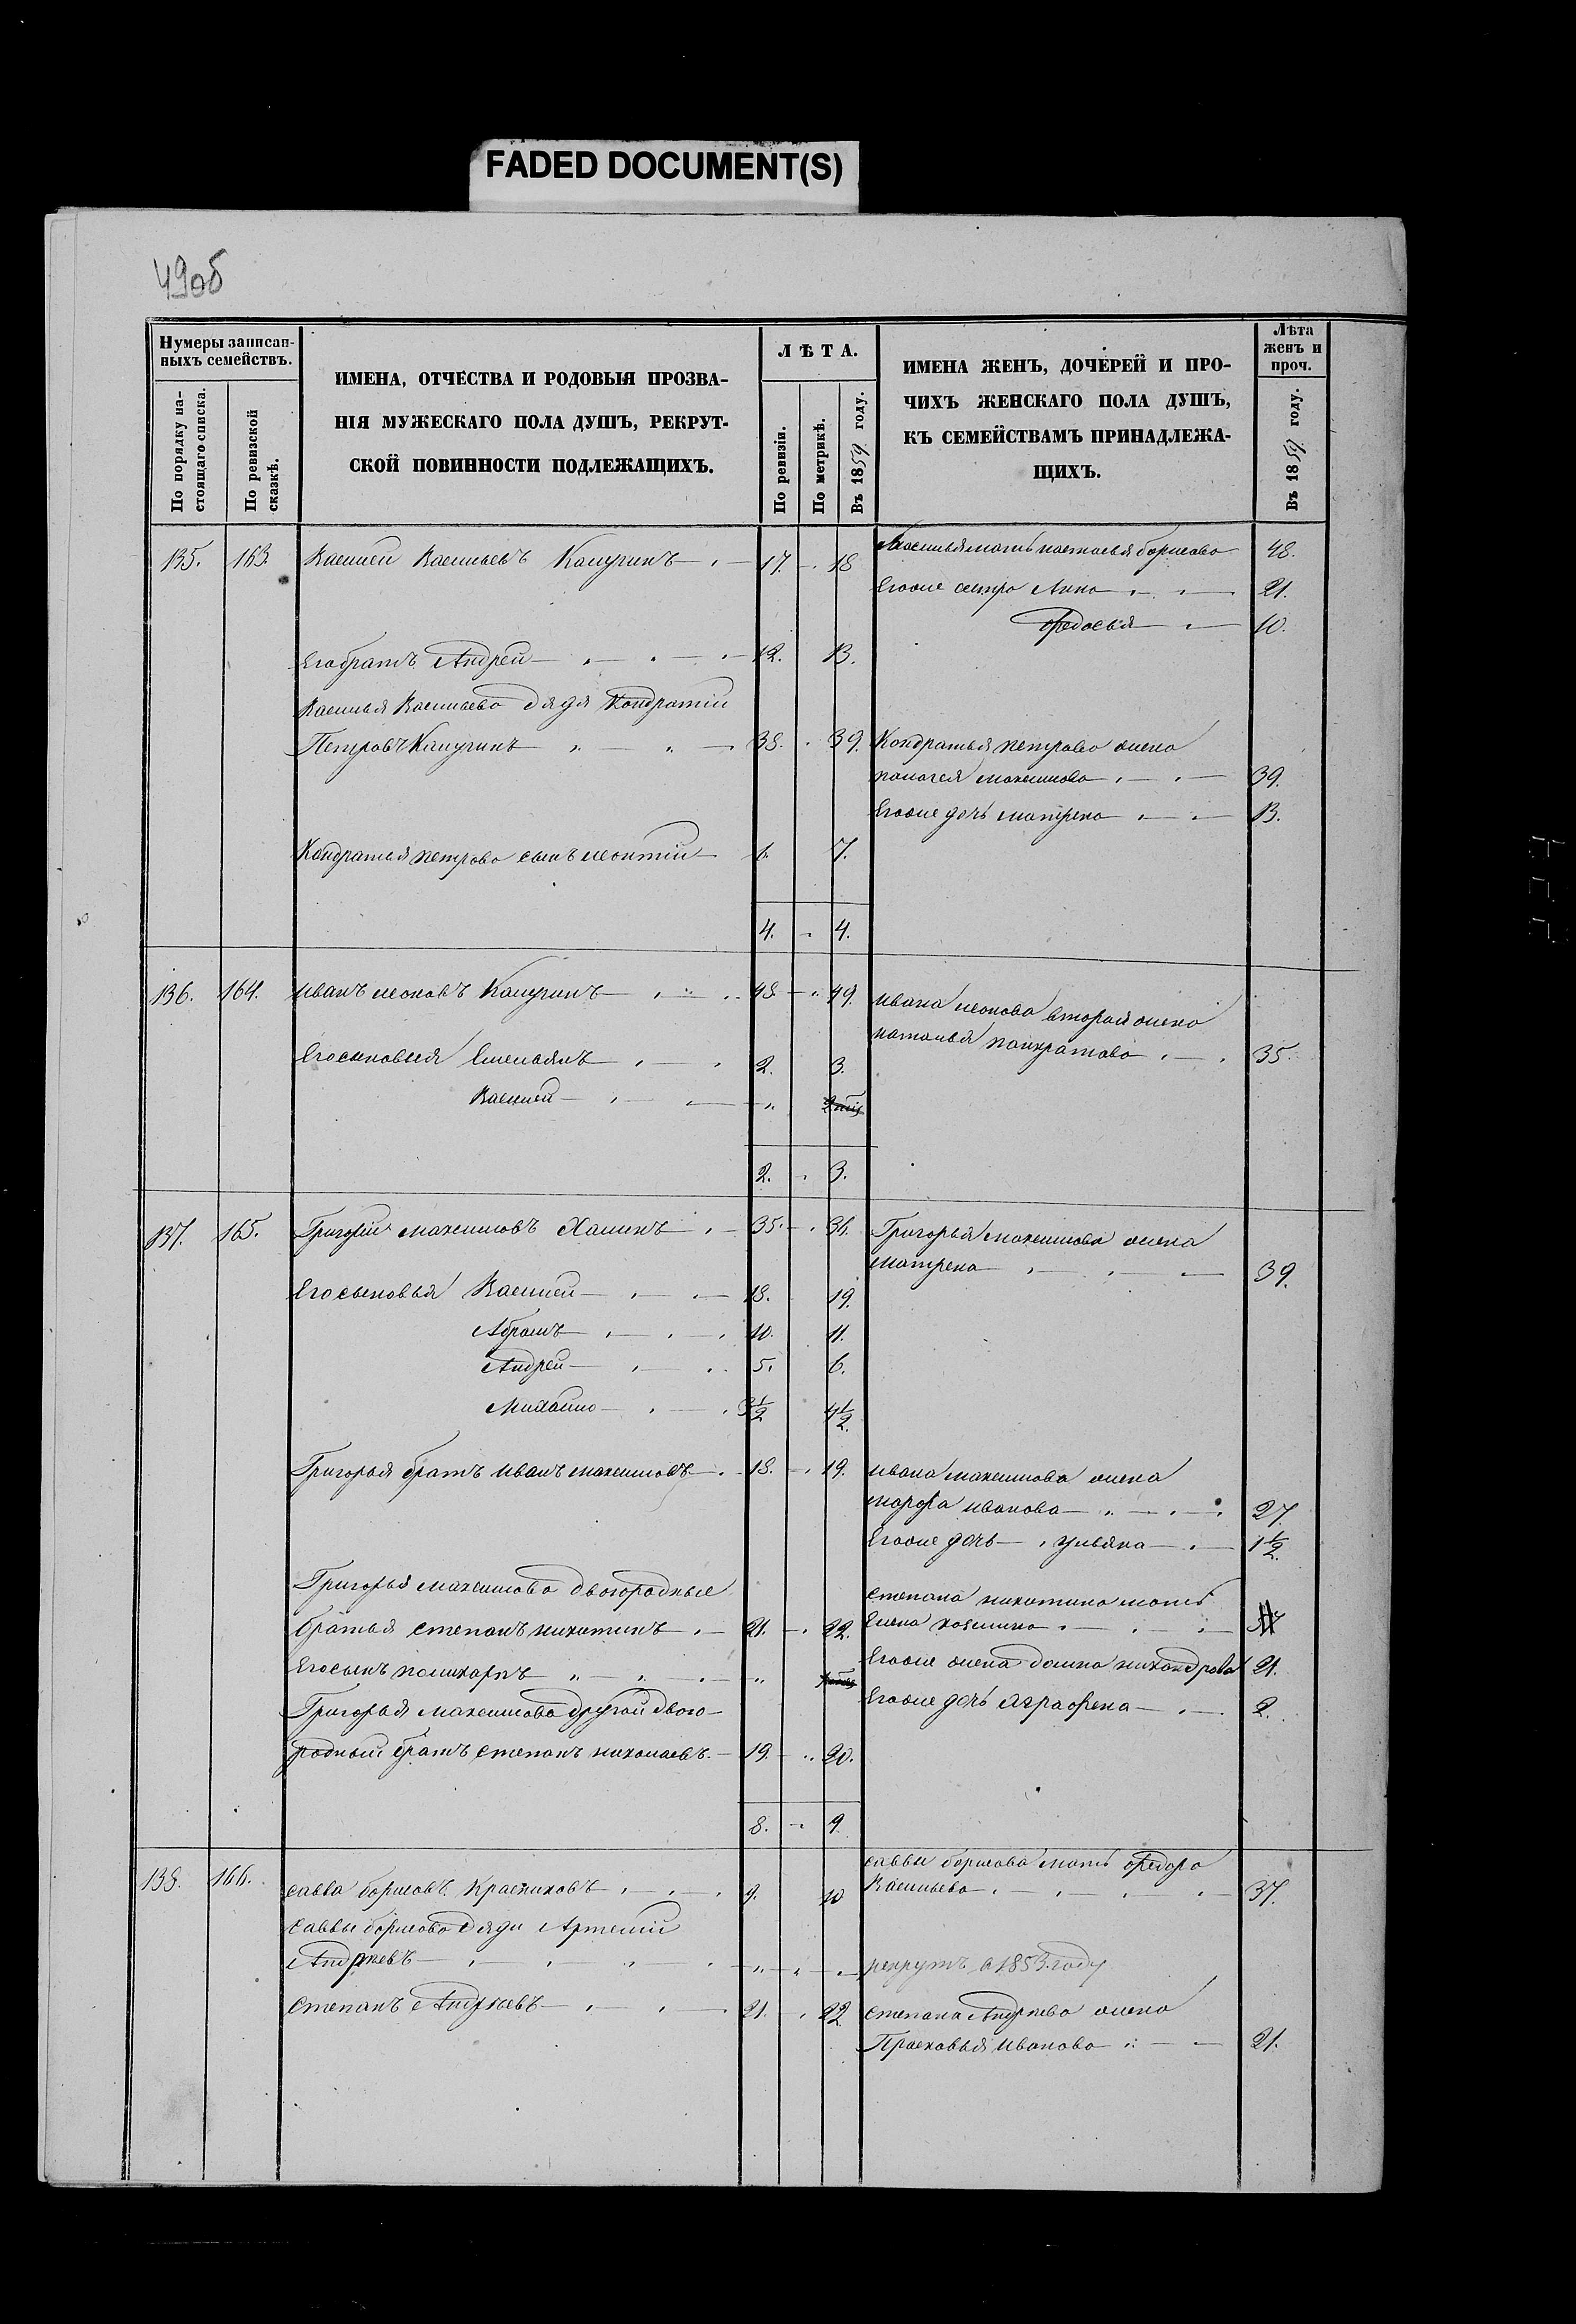 FADED DOCUMENT(S)
49об
Нумеры записан-
ныхъ семействъ.
По порядку на-
стоящаго списка.
По ревизской
сказкѣ.
ИМЕНА, ОТЧЕСТВА И РОДОВЫЯ ПРОЗВА-
НІЯ МУЖЕСКАГО ПОЛА ДУШЪ, РЕКРУТ-
СКОЙ ПОВИННОСТИ ПОДЛЕЖАЩИХЪ.
ЛѢТА.
По ревизіи.
По метрикѣ.
Въ 1859 году.
ИМЕНА ЖЕНЪ, ДОЧЕРЕЙ И ПРО-
ЧИХЪ ЖЕНСКАГО ПОЛА ДУШЪ,
КЪ СЕМЕЙСТВАМЪ ПРИНАДЛЕЖА-
ЩИХЪ.
Лѣта
женъ и
проч.
Въ 1859 году.
135. 163. Василей Васильевъ Калугинъ 17. 18 Василья мать наталья борисова 48.
Егоже сестра Анна 21.
Федосья 10.
Его братъ Андрей 12. 13.
Василья Васильева дядя Кондратій
Петровъ Калугинъ 38. 39. Кондратья петрова жена
палагея максимова 39.
Егоже дочь матрена 13.
Кондратья петрова сынъ леонтій 6. 7.
4. 4.
136. 164. иванъ леоновъ Калугинъ 48. 49. ивана леонова вторая жена
наталья панкратова 35.
Его сыновья Емельянъ 2. 3.
Василей
2. 3.
137. 165. Григорій максимовъ Халинъ 35. 36. Григорья максимова жена
матрена 39.
Его сыновья Василей 18. 19.
Абрамъ 10. 11.
Андрей 5. 6.
Михайло 3½ 4½.
Григорья братъ иванъ максимовъ 18. 19. ивана максимова жена
марфа иванова 27.
Егоже дочь ульяна 1½.
Григорья максимова двоюродные
братья степанъ никитинъ 21. 22. степана никитина мать
Елена козмина
Его сынъ поликарпъ Егоже жена домна никандрова 21.
Григорья максимова другой двою-
родный братъ степанъ николаевъ. 19. 20. Егоже дочь аграфена 2.
8. 9.
138. 166. савва борисовъ Красниковъ 9. 10 саввы борисова мать федора
Васильева 37.
саввы борисова дяди Артемій
Андреевъ рекрутъ в 1853 году
степанъ Андреевъ 21. 22 степана Андреева жена
Прасковья иванова 21.